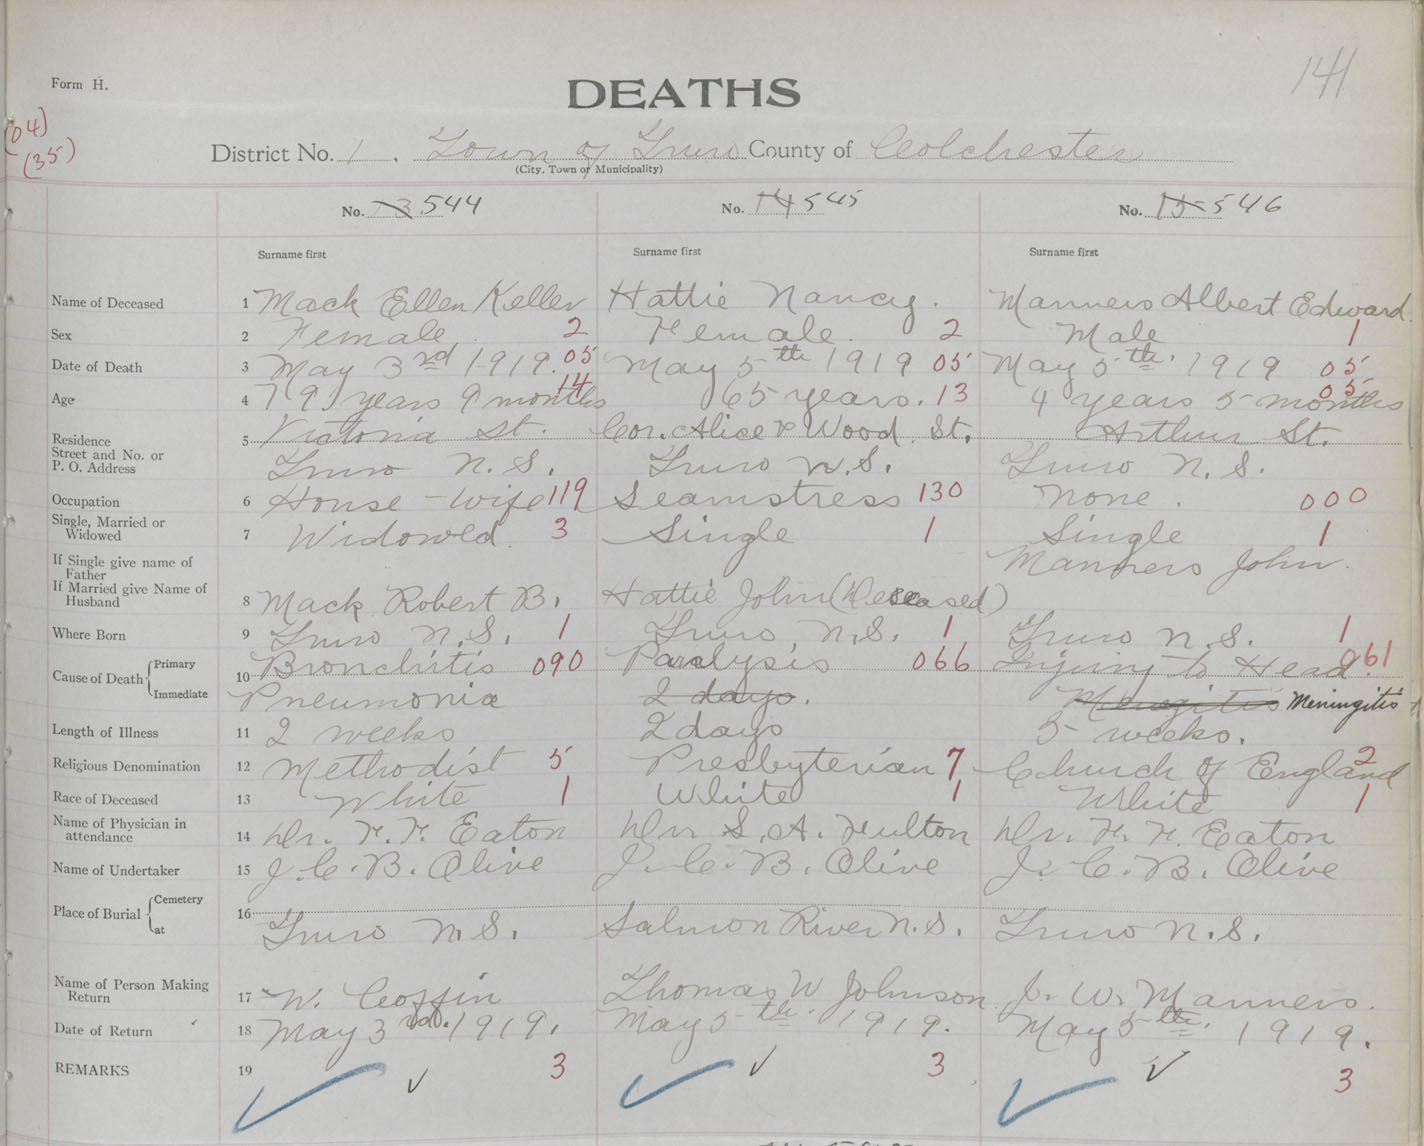 141
Form H.
DEATHS
(04)
(35)
District No. 1. Town of Truro County of Colchester
(City, Town or Municipality)
No. 13 544 No. 14 545 No. 15 546
Surname first Surname first Surname first
Name of Deceased 1 Mack Ellen Keller Hattie Nancy. Manners Albert Edward.
Sex 2 Female 2 Female. 2 Male 1
Date of Death 3 May 3rd 1919. 05 May 5th 1919 05 May 5th. 1919 05
Age 4 79 years 9 months 14 65 years. 13 4 years 5 months 05
Residence
Street and No. or
P. O. Address
5 Victoria St. Cor. Alice & Wood St. Arthur St.
Truro N. S. Truro N. S. Truro N. S.
Occupation 6 House-wife 119 Seamstress 130 None. 000
Single, Married or
Widowed
7 Widowed. 3 Single 1 Single 1
If Single give name of
Father
Manners John.
If Married give Name of
Husband
8 Mack Robert B. Hattie John (Deceased)
Where Born 9 Truro N.S. 1 Truro N.S. 1 Truro N.S. 1
Cause of Death { Primary
Immediate
10 Bronchitis 090 Paralysis 066 Injury to Head. 061
Pneumonia 2 days. Menegitis Meningitis
Length of Illness 11 2 weeks 2 days 5 weeks.
Religious Denomination 12 Methodist 5 Presbyterian 7 Church of England 2
Race of Deceased 13 White 1 White 1 White 1
Name of Physician in
attendance
14 Dr. F. F. Eaton Dr S. A. Fulton Dr. F. F. Eaton
Name of Undertaker 15 J. C. B. Olive J. C. B. Olive J. C. B. Olive
Place of Burial { Cemetery
at
16 Truro N.S. Salmon River N.S. Truro N.S.
Name of Person Making
Return
17 W. Coffin Thomas W Johnson J. W. Manners.
Date of Return 18 May 3rd. 1919. May 5th. 1919. May 5th. 1919.
REMARKS 19 3 3 3